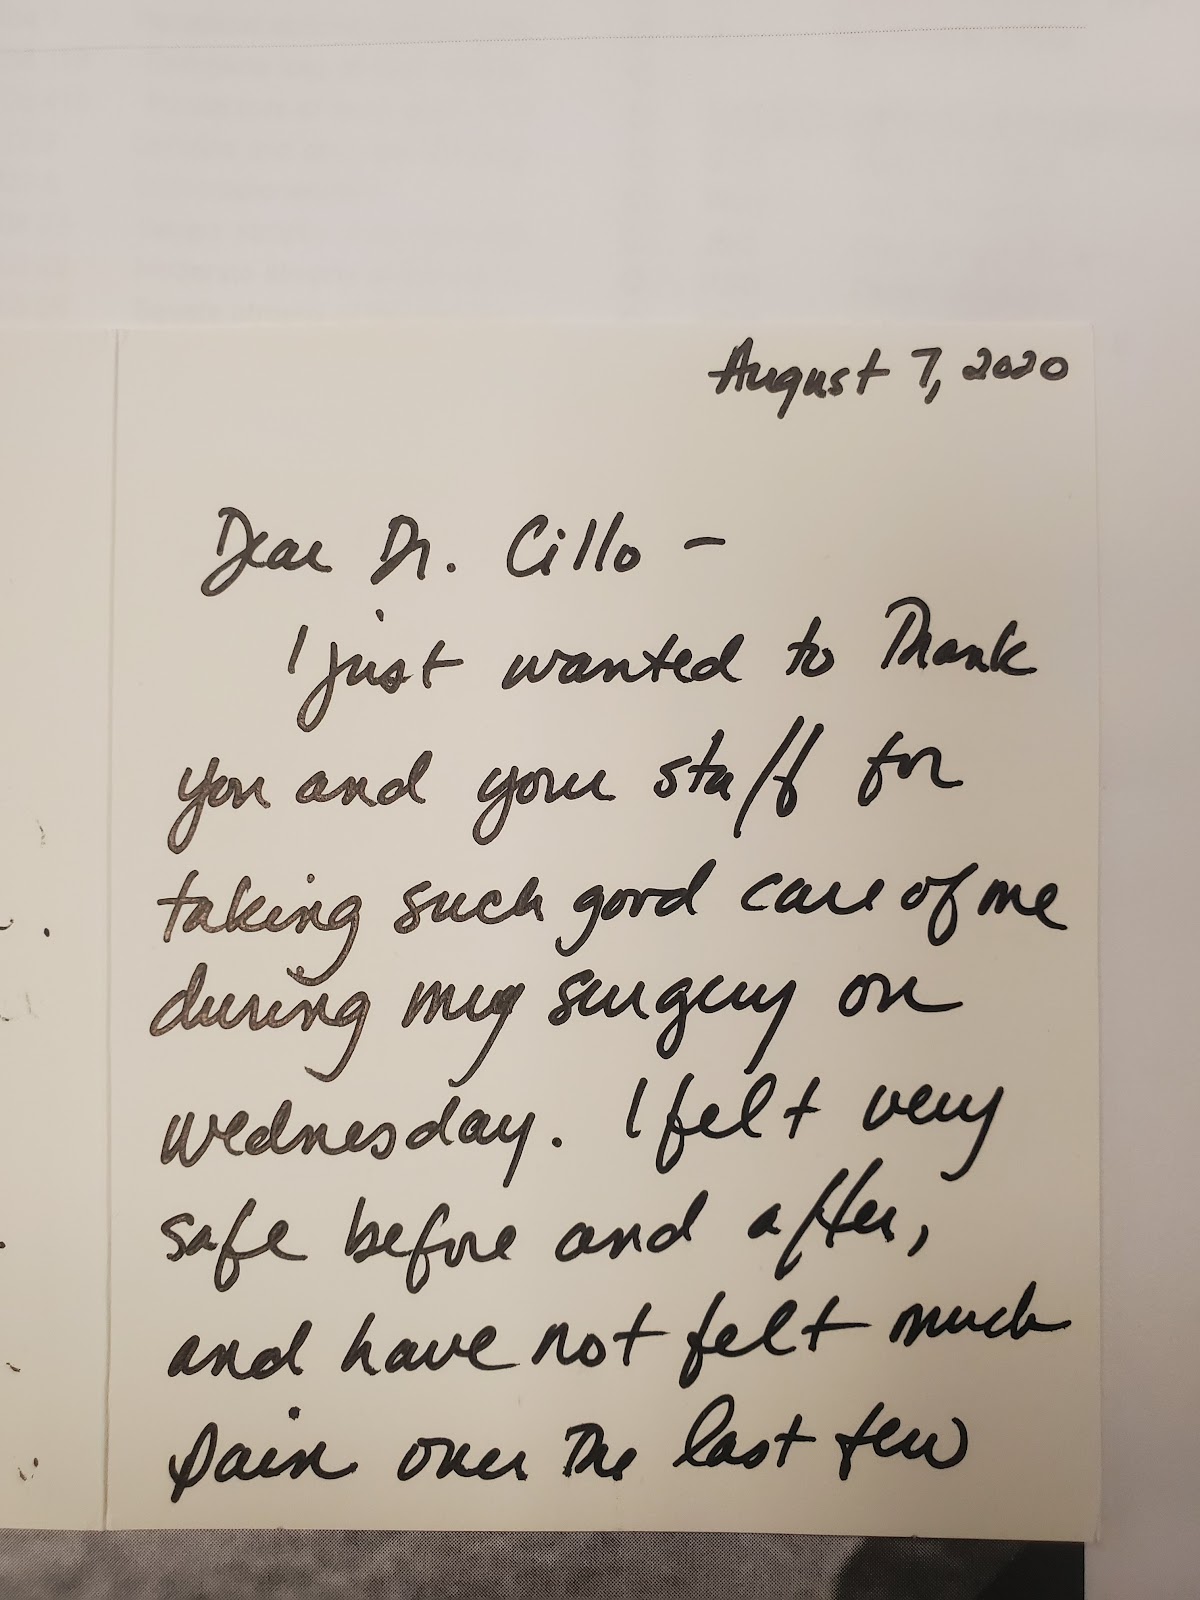 August 7, 2020
Dear Dr. Cillo –
I just wanted to Thank
you and your staff for
taking such good care of me
during my surgery on
Wednesday. I felt very
safe before and after,
and have not felt much
pain over the last few